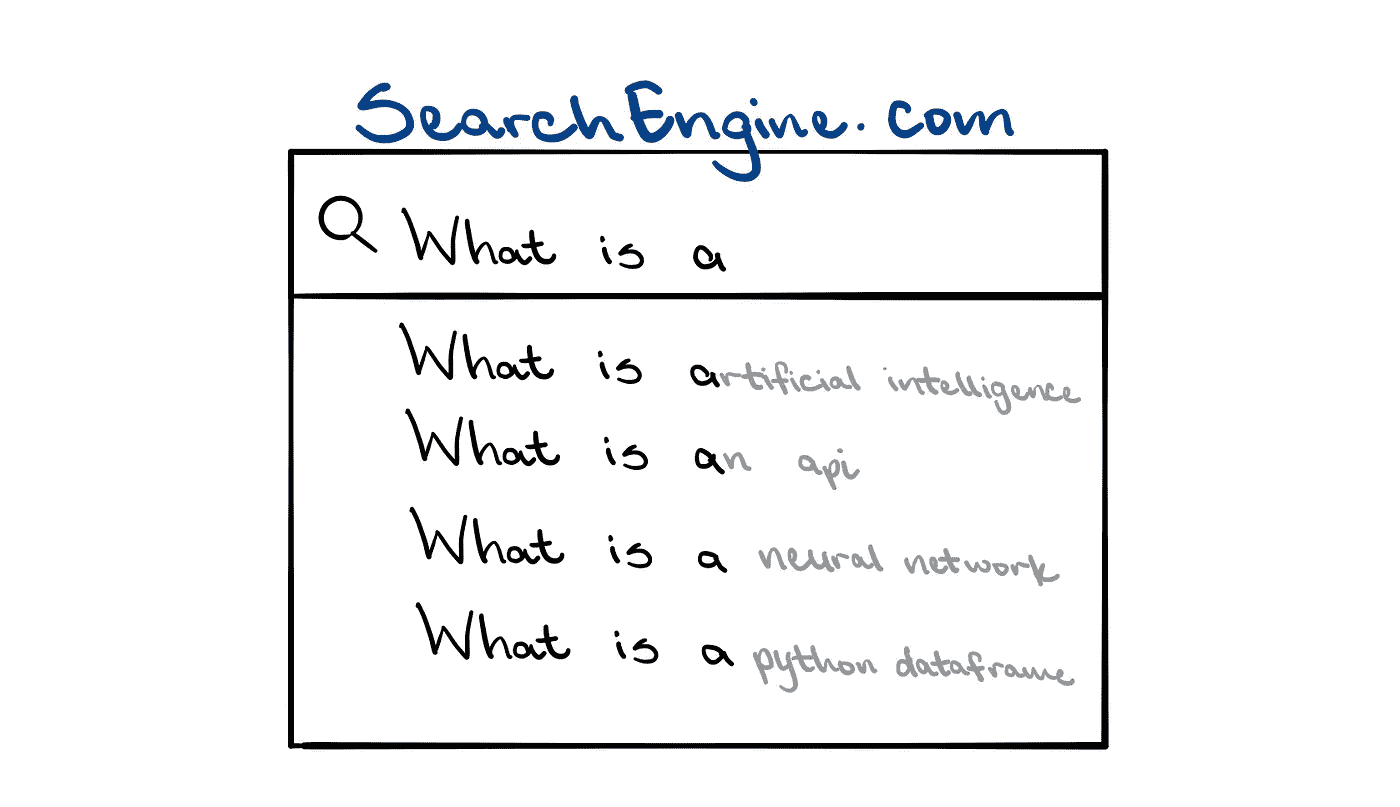 SearchEngine.com
What is a
What is artificial intelligence
What is an api
What is a neural network
What is a python dataframe